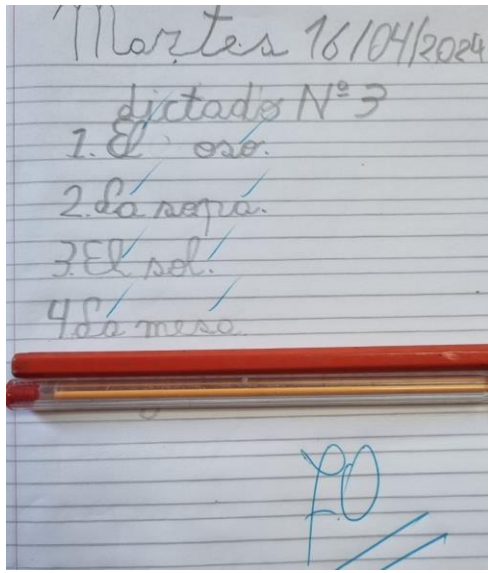 Martes 16/04/2024
dictado Nº 3
1. El oso.
2. La sopa.
3. El sol.
4. La mesa
7.0